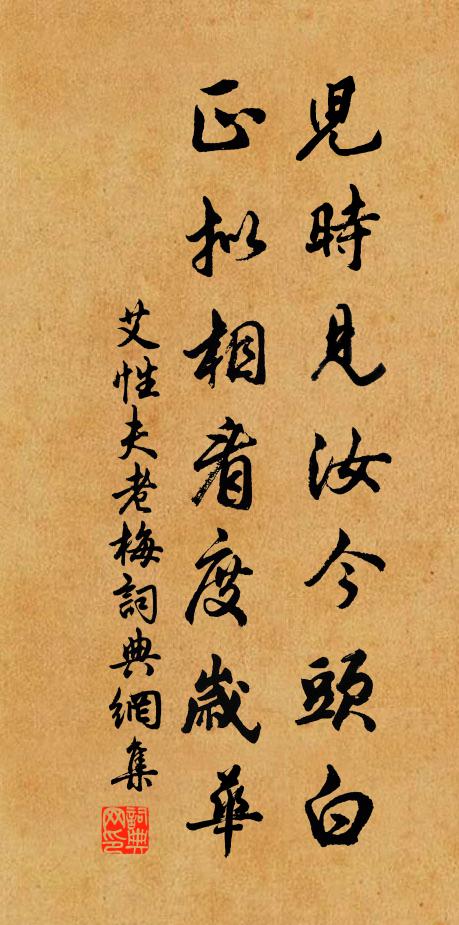 兒時見汝今頭白
正拟相看度歲華
艾性夫老梅詞典網集
詞典网印